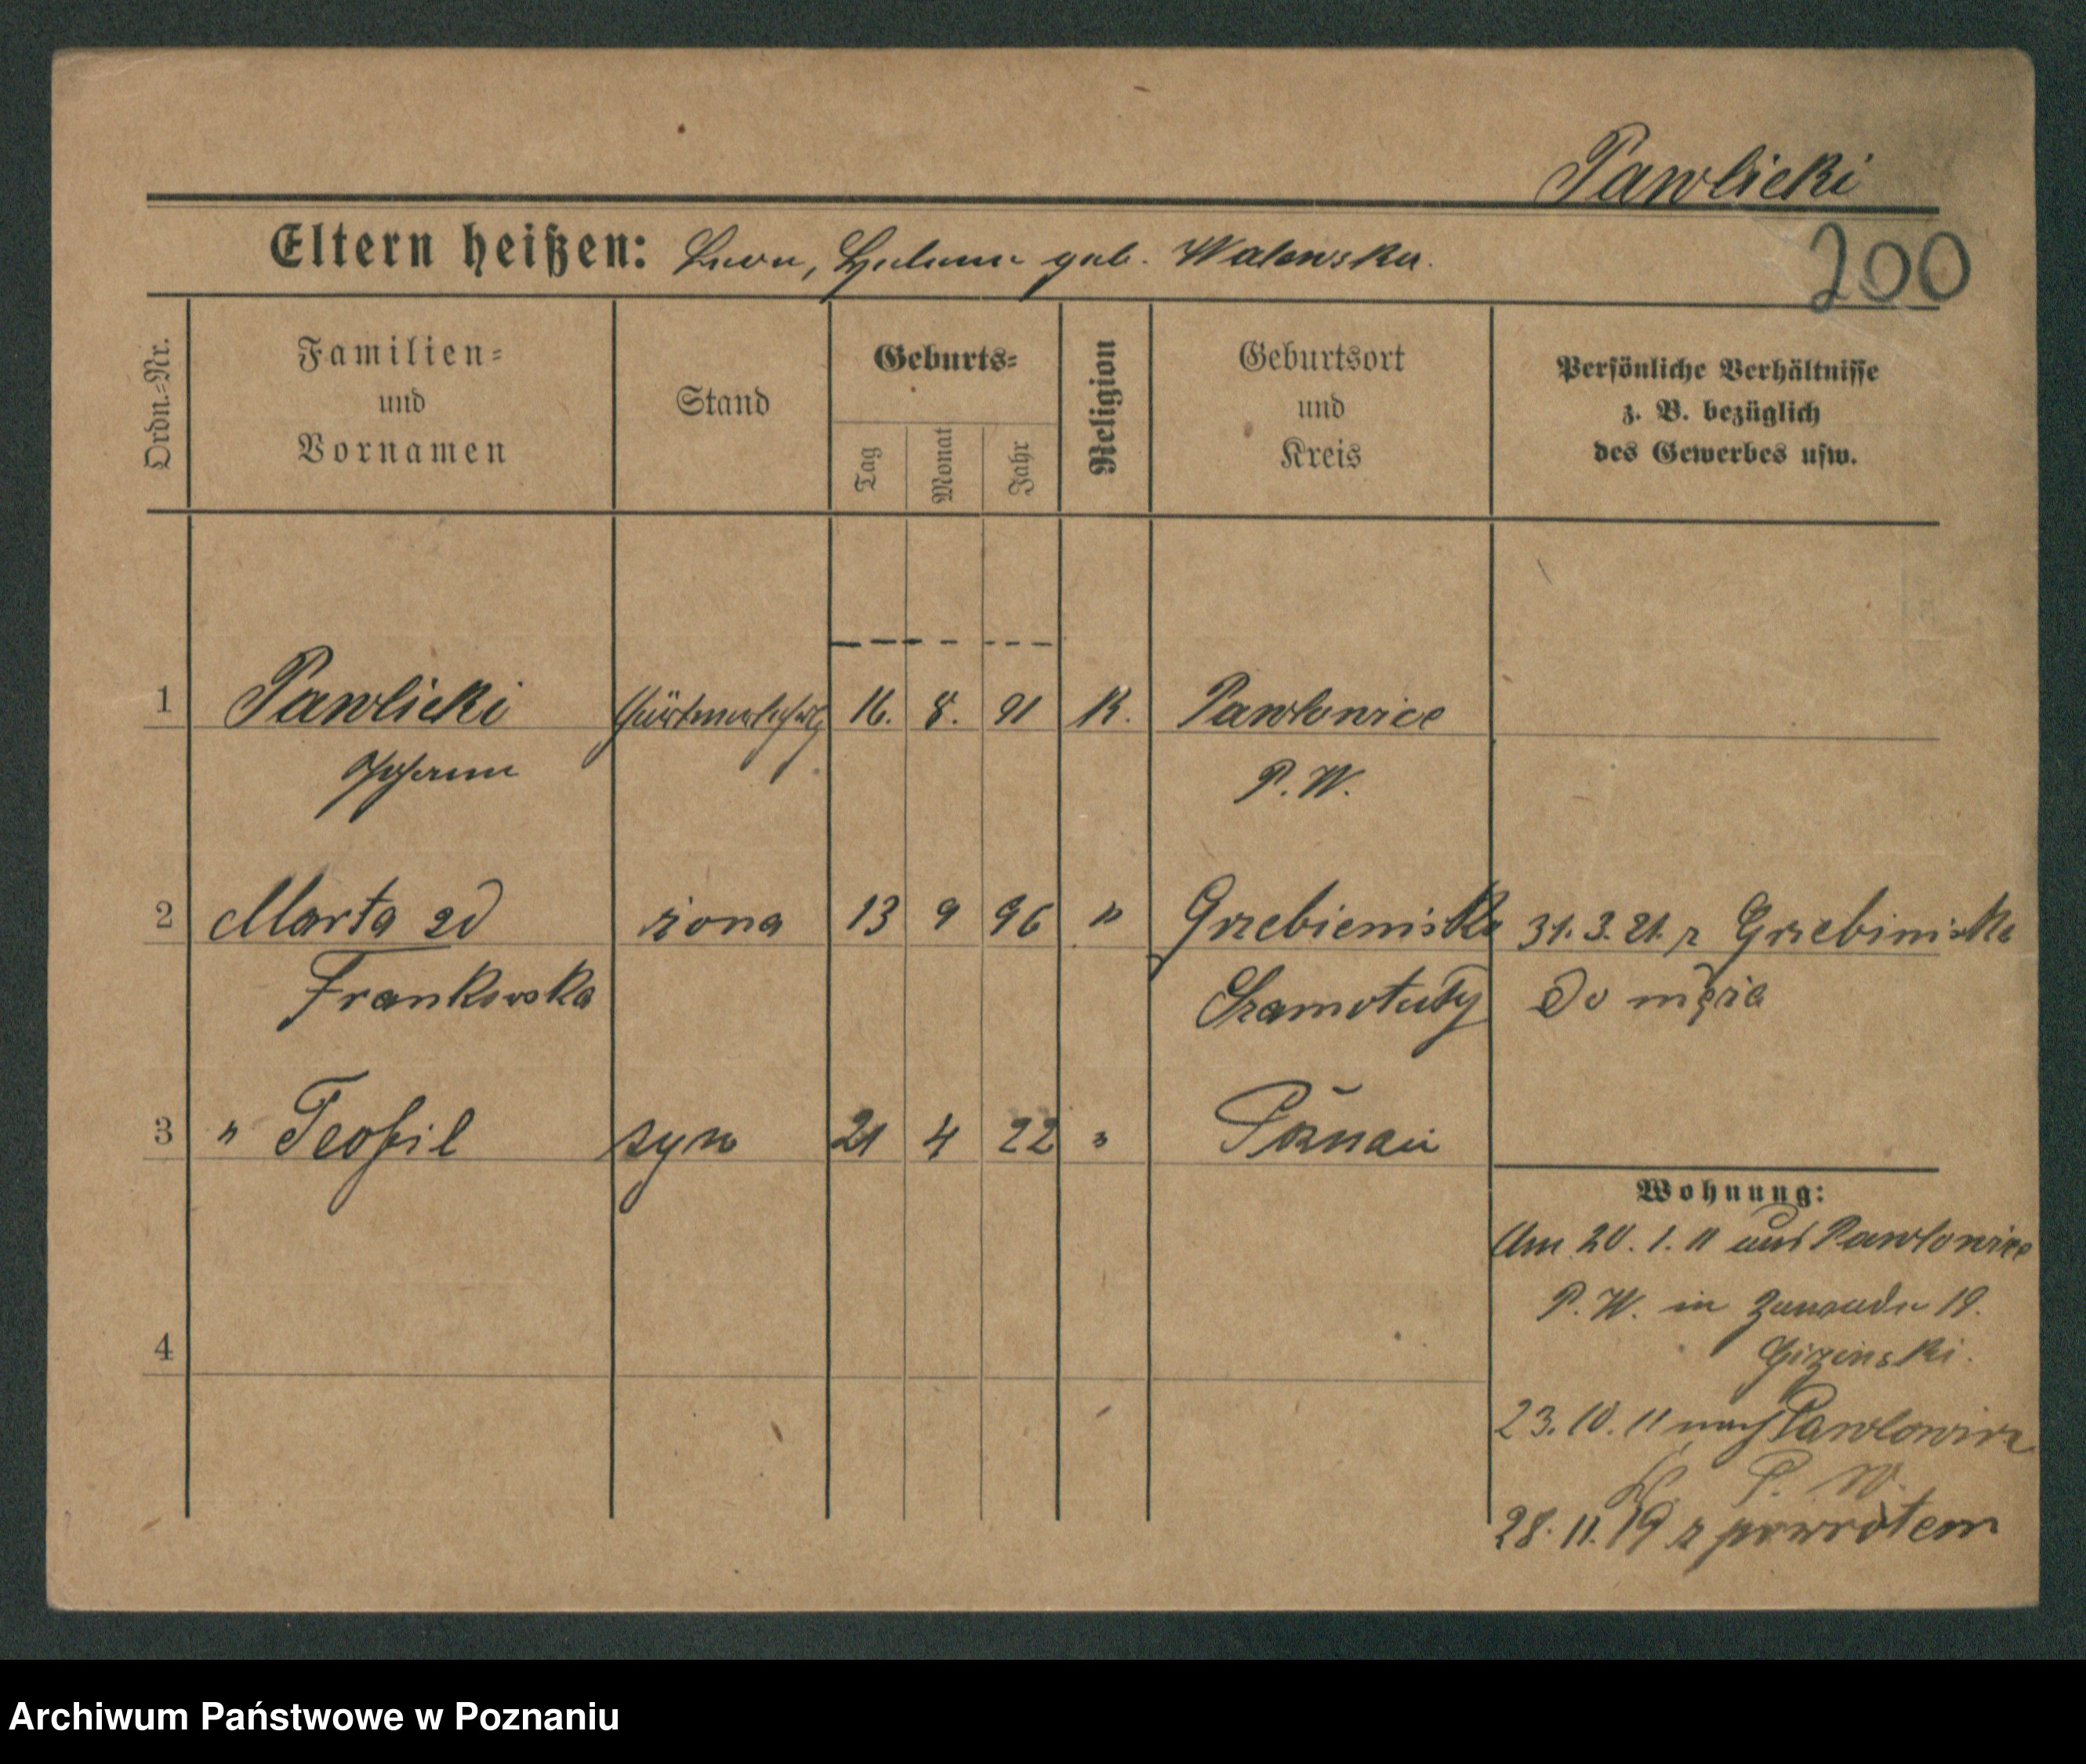 Pawlicki
Eltern heißen: Leon, Helene geb. Walenska.
200
Ordn.=Nr.
Familien=
und
Vornamen
Stand
Geburts=
Tag
Monat
Jahr
Religion
Geburtsort
und
Kreis
Persönliche Verhältnisse
z. B. bezüglich
des Gewerbes usw.
1 Pawlicki Gärtnerlehrlg 16. 8. 91 K. Pawlowice
Johann P. W.
2 Marta zd żona 13 9 96 " Grzebienisko 31. 3. 21. z Grzebinisko
Frankowska Szamotuły do męża
3 " Teofil syn 21 4 22 " Poznań
Wohnung:
Am 20. 1. 11 aus Pawlowice
P. W. in 19.
Gizinski.
4
23. 10. 11 nach Pawlowice
P. W.
28. 11. 19 z powrotem
Archiwum Państwowe w Poznaniu